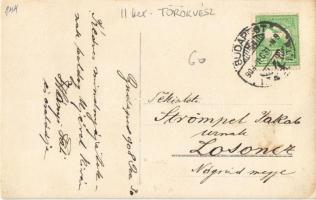 II ker - TÖRÖKVÉSZ
60
BUDAPEST
Budapest 908
Kedves mindnyájatok-
nak boldog új évet kíván
és családja
Tekintetes
Strömpel Jakab
urnak
Losoncz
Nógrád megye